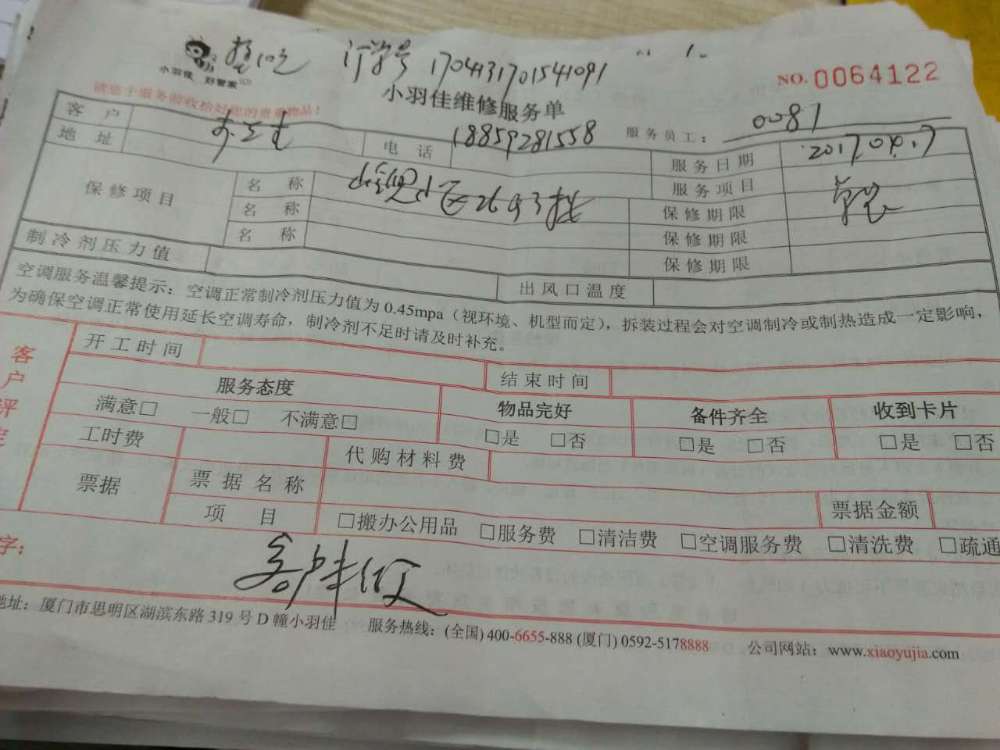 小羽佳 好管家
订单号 1704131701541091
NO. 0064122
请您于服务前收拾好您的贵重物品！
小羽佳维修服务单
服务员工： 0081
客户 电话 18859281558 服务日期 2017.04.17
地址 服务项目
保修项目 名称 保修期限
名称 保修期限
名称 保修期限
制冷剂压力值 出风口温度
空调服务温馨提示：空调正常制冷剂压力值为0.45mpa（视环境、机型而定），拆装过程会对空调制冷或制热造成一定影响，
为确保空调正常使用延长空调寿命，制冷剂不足时请及时补充。
客户评定
开工时间 结束时间
服务态度 物品完好 备件齐全 收到卡片
满意□ 一般□ 不满意□ □是 □否 □是 □否 □是 □否
工时费 代购材料费
票据 票据名称 票据金额
项目 □搬办公用品 □服务费 □清洁费 □空调服务费 □清洗费 □疏通
字：
地址：厦门市思明区湖滨东路319号D幢小羽佳 服务热线：(全国)400-6655-888 (厦门)0592-5178888 公司网站：www.xiaoyujia.com